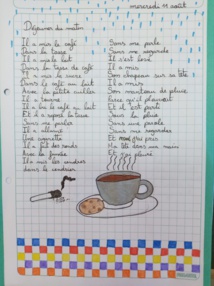 mercredi 11 août
Déjeuner du matin
Il a mis le café
Dans la tasse
Il a mis le lait
Dans la tasse de café
Il a mis le sucre
Dans le café au lait
Avec la petite cuiller
Il a tourné
Il a bu le café au lait
Et il a reposé la tasse
Sans me parler
Il a allumé
Une cigarette
Il a fait des ronds
Avec la fumée
Il a mis les cendres
dans le cendrier
Sans me parler
Sans me regarder
Il s'est levé
Il a mis
Son chapeau sur sa tête
Il a mis
Son manteau de pluie
Parce qu'il pleuvait
Et il est parti
Sous la pluie
Sans une parole
Sans me regarder
Et moi j'ai pris
Ma tête dans ma main
Et j'ai pleuré